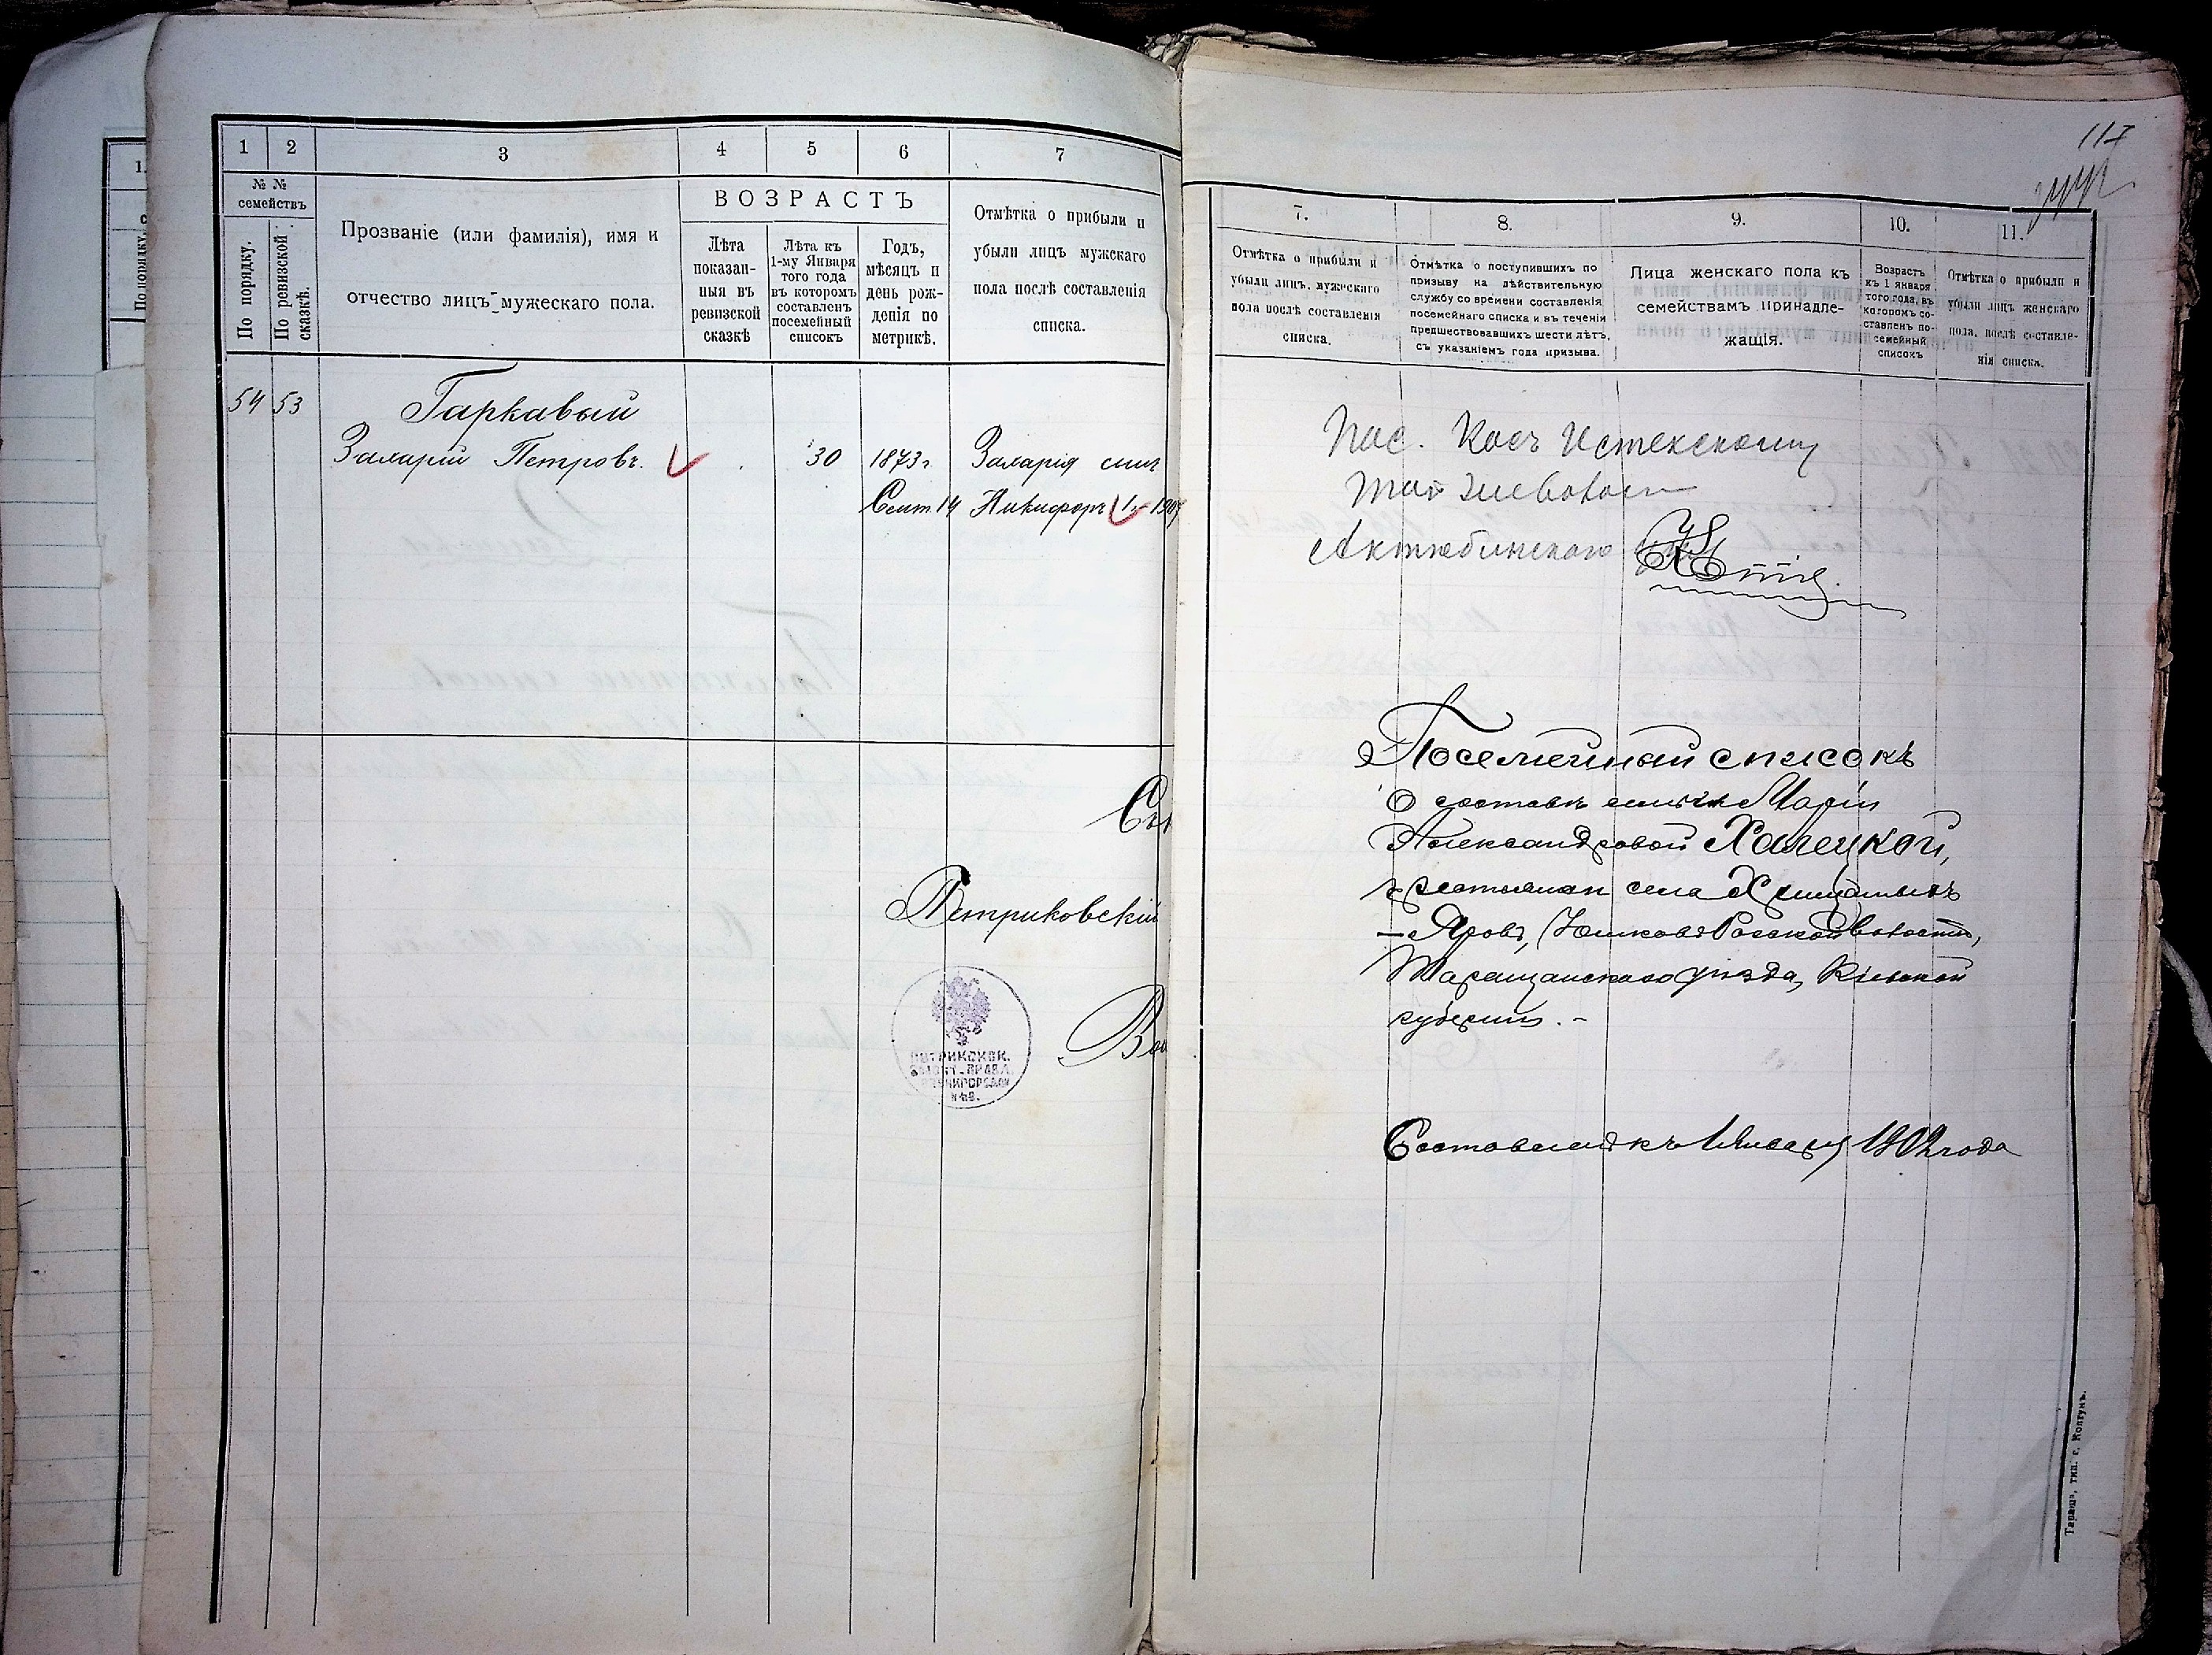 1 2 3 4 5 6 7
№ № семействъ
По порядку.
По ревизской сказкѣ.
Прозваніе (или фамилія), имя и
отчество лицъ мужескаго пола.
ВОЗРАСТЪ
Лѣта
показан-
ныя въ
ревизской
сказкѣ
Лѣта къ
1-му Января
того года
въ которомъ
составленъ
посемейный
списокъ
Годъ,
мѣсяцъ и
день рож-
денія по
метрикѣ.
Отмѣтка о прибыли и
убыли лицъ мужскаго
пола послѣ составленія
списка.
54 53 Гаркавый
Захарій Петровъ. 30 1873 г. Захарія сынъ
Сент. 14 Никифоръ 1
Петриковскій
ВОЛОСТ. ПРАВЛ.
117
7. 8. 9. 10. 11.
Отмѣтка о прибыли и
убыли лицъ мужскаго
пола послѣ составленія
списка.
Отмѣтка о поступившихъ по
призыву на дѣйствительную
службу со времени составленія
посемейнаго списка и въ теченіи
предшествовавшихъ шести лѣтъ,
съ указаніемъ года призыва.
Лица женскаго пола къ
семействамъ принадле-
жащія.
Возрастъ
къ 1 января
того года, въ
которомъ со-
ставленъ по-
семейный
списокъ
Отмѣтка о прибыли и
убыли лицъ женскаго
пола, послѣ составле-
нія списка.
Пос. Косъ Истекскому
Актюбинскаго
Посемейный списокъ
О составѣ семьи Маріи
Александровой Халецкой,
крестьянки села Хрещатыхъ
-Яровъ, Юшково Росской волости,
Таращанскаго уѣзда, Кіевской
губерніи.-
Составленъ къ 1 Января 1902 года
Тараща, тип. г. Колтунъ.